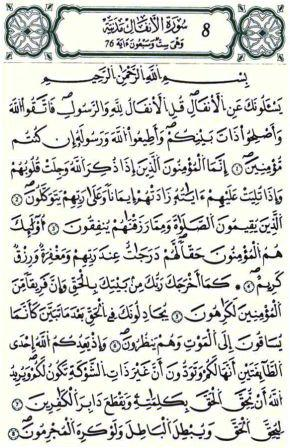 سُورَةُ الأَنفَالِ مَدَنِيَّة 8
وَهِيَ سِتٌّ وَسَبْعُونَ ءَايَة 76
بِسْمِ اللَّهِ الرَّحْمَٰنِ الرَّحِيمِ
يَسْـَٔلُونَكَ عَنِ الْأَنفَالِ قُلِ الْأَنفَالُ لِلَّهِ وَالرَّسُولِ فَاتَّقُوا اللَّهَ
وَأَصْلِحُوا ذَاتَ بَيْنِكُمْ وَأَطِيعُوا اللَّهَ وَرَسُولَهُ إِن كُنتُم
مُّؤْمِنِينَ ① إِنَّمَا الْمُؤْمِنُونَ الَّذِينَ إِذَا ذُكِرَ اللَّهُ وَجِلَتْ قُلُوبُهُمْ
وَإِذَا تُلِيَتْ عَلَيْهِمْ ءَايَٰتُهُ زَادَتْهُمْ إِيمَانًا وَعَلَىٰ رَبِّهِمْ يَتَوَكَّلُونَ ②
الَّذِينَ يُقِيمُونَ الصَّلَوٰةَ وَمِمَّا رَزَقْنَٰهُمْ يُنفِقُونَ ③ أُولَٰئِكَ
هُمُ الْمُؤْمِنُونَ حَقًّا لَّهُمْ دَرَجَٰتٌ عِندَ رَبِّهِمْ وَمَغْفِرَةٌ وَرِزْقٌ
كَرِيمٌ ④ كَمَا أَخْرَجَكَ رَبُّكَ مِن بَيْتِكَ بِالْحَقِّ وَإِنَّ فَرِيقًا مِّنَ
الْمُؤْمِنِينَ لَكَٰرِهُونَ ⑤ يُجَٰدِلُونَكَ فِي الْحَقِّ بَعْدَمَا تَبَيَّنَ كَأَنَّمَا
يُسَاقُونَ إِلَى الْمَوْتِ وَهُمْ يَنظُرُونَ ⑥ وَإِذْ يَعِدُكُمُ اللَّهُ إِحْدَى
الطَّائِفَتَيْنِ أَنَّهَا لَكُمْ وَتَوَدُّونَ أَنَّ غَيْرَ ذَاتِ الشَّوْكَةِ تَكُونُ لَكُمْ وَيُرِيدُ
اللَّهُ أَن يُحِقَّ الْحَقَّ بِكَلِمَٰتِهِ وَيَقْطَعَ دَابِرَ الْكَٰفِرِينَ ⑦
لِيُحِقَّ الْحَقَّ وَيُبْطِلَ الْبَٰطِلَ وَلَوْ كَرِهَ الْمُجْرِمُونَ ⑧